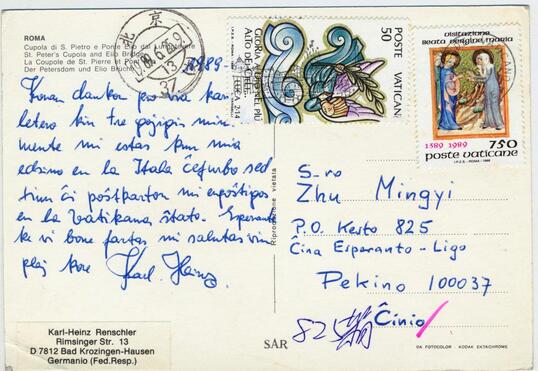 ROMA
Cupola di S. Pietro e Ponte Elio dal Lungotevere
St. Peter's Cupola and Elio Bridge
La Coupole de St. Pierre et Pont
Der Petersdom und Elio Brücke
北京
1989.6.
13
37
1989-
Koran dankon pro via kar
letero kin tre ĝojigis min.
mente mi estas kun mia
edzino en la Itala ĉefurbo sed
tiun ĉi poŝtkarton mi enpoŝtigos
en la Vatikana Ŝtato. Esperante
ke vi bone fartas mi salutas vin
plej kore Karl-Heinz
Karl-Heinz Renschler
Rimsinger Str. 13
D 7812 Bad Krozingen-Hausen
Germanio (Fed.Resp.)
Riproduzione vietata
SAR
POSTE VATICANE
50
GLORIA A DIO NEL PIÙ
ALTO DEI CIELI
visitazione
Beata Vergine Maria
1389 1989
750
poste vaticane
S-ro
Zhu Mingyi
P.O. Kesto 825
Ĉina Esperanto-Ligo
Pekino 100037
Ĉinio
825
GA FOTOCOLOR KODAK EKTACHROME